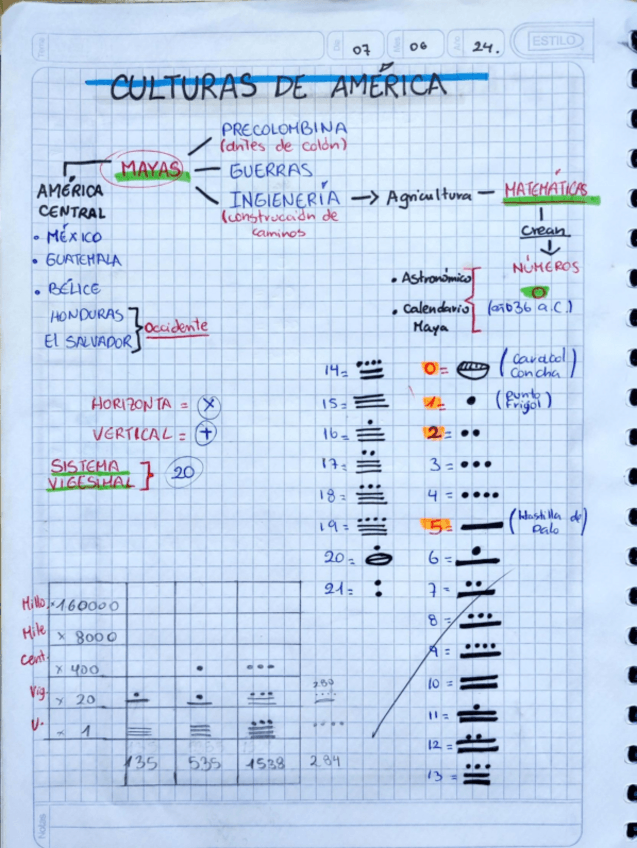 Tema
Día 07 Mes 06 Año 24.
ESTILO
CULTURAS DE AMÉRICA
MAYAS
PRECOLOMBINA
(antes de colón)
GUERRAS
INGIENERÍA → Agricultura — MATEMÁTICAS
(construcción de
caminos
AMÉRICA
CENTRAL
• MÉXICO
• GUATEMALA
• BÉLICE
HONDURAS
EL SALVADOR
Occidente
Crean
NÚMEROS
0
(año36 a.C.)
• Astronómico
• Calendario
Maya
HORIZONTA = ×
VERTICAL = +
SISTEMA
VIGESIMAL
20
14=
15=
16=
17=
18=
19=
20=
21=
0= (Caracol
Concha)
1= (Punto
Frigol)
2=
3=
4=
5= (blastilla de
Palo)
6=
7=
8=
9=
10=
11=
12=
13=
Millo. ×160000
Mile × 8000
Cent. × 400
Vig. × 20 280
U. × 1
135 535 1538 284
Notas